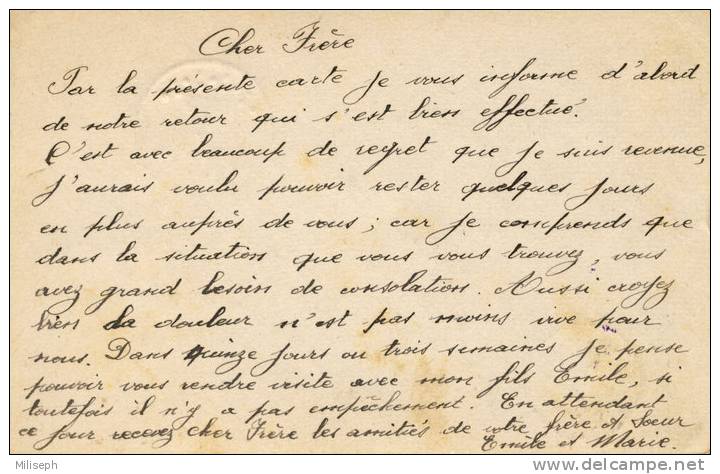 Cher Frère
Par la présente carte je vous informe d'abord
de notre retour qui s'est bien effectué.
C'est avec beaucoup de regret que je suis revenue,
j'aurais voulu pouvoir rester quelques jours
en plus auprès de vous ; car je comprends que
dans la situation que vous vous trouvez, vous
avez grand besoin de consolation. Aussi croyez
bien la douleur n'est pas moins vive pour
nous. Dans quinze jours ou trois semaines je pense
pouvoir vous rendre visite avec mon fils Emile, si
toutefois il n'y a pas empêchement. En attendant
ce jour recevez cher Frère les amitiés de votre frère et Soeur
Emile et Marie.
© Miliseph
http://www.delcampe.net